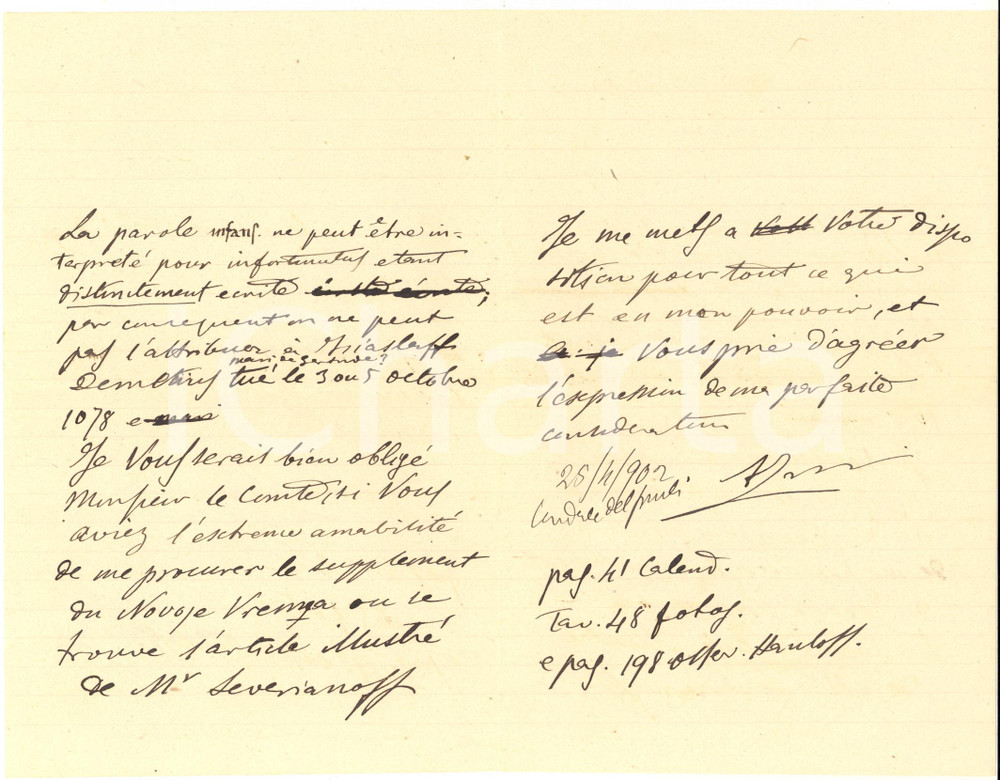 La parole infans. ne peut être in=
terpreté pour infortunatus etant
distinctement ecrite
par consequent on ne peut
pas l'attribuer à Isiaslaff
mari de Gertrude?
Demetrius tué le 3 ou 5 octobre
1078 e mari
Je Vous serais bien obligé
Monsieur le Comte, si Vous
aviez l'extreme amabilité
de me procurer le supplement
du Novoje Vremya ou se
trouve l'article illustré
de Mr Severianoff
Je me mets a Votre dispo
sition pour tout ce qui
est en mon pouvoir, et
Vous prie d'agréer
l'expression de ma parfaite
consideration
25/4/902
Cividale del friuli
pag. 41 Calend.
Tav. 48 fotog.
e pag. 198 osser. Hauloff.
Charta